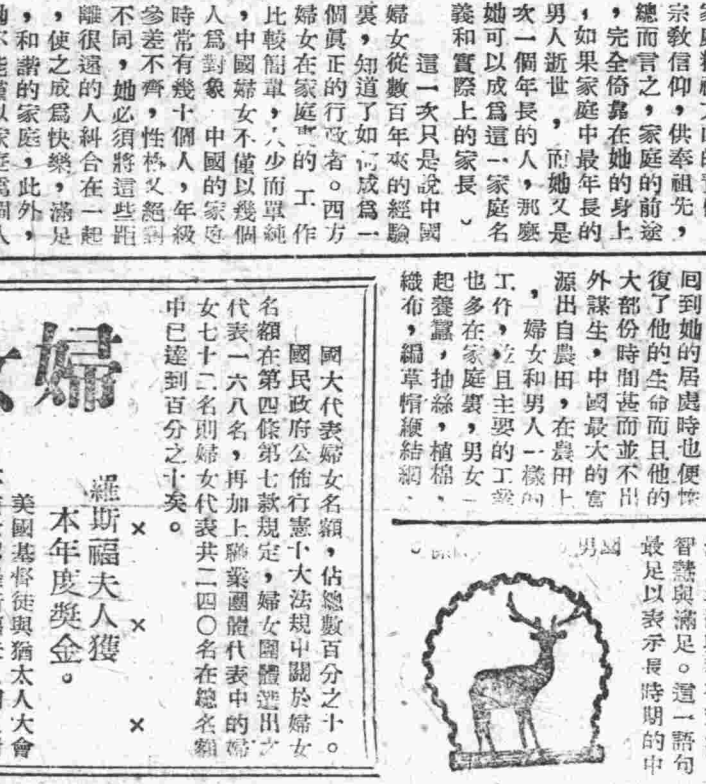 宗敎信仰，供奉祖先，
總而言之，家庭的前途
，完全倚靠在她的身上
，如果家庭中最年長的
男人逝世，而她又是
次一個年長的人，那麽
她可以成爲這一家庭名
義和實際上的家長。
這一次只是說中國
婦女從數百年來的經驗
裏，知道了如何成爲一
個眞正的行政者。西方
婦女在家庭裏的工作
比較簡單，人少而單純
，中國婦女不僅以幾個
人爲對象　中國的家庭
時常有幾十個人，年級
參差不齊，性格又絕對
不同，她必須將這些距
離很遠的人糾合在一起
，使之成爲快樂，滿足
，和諧的家庭，此外，
囘到她的居處時也便恢
復了他的生命而且他的
大部份時間甚而並不出
外謀生，中國最大的富
源出自農田，在農田上
，婦女和男人一樣的
工作，並且主要的工業
也多在家庭裏，男女一
起養蠶，抽絲，植棉，
織布，編草帽緶結網，
智慧與滿足。這一語句
最足以表示長時期的中
國男
國大代表婦女名額，佔總數百分之十。
國民政府公佈行憲十大法規中關於婦女
名額在第四條第七款規定，婦女團體選出之
代表一六八名，再加上職業團體代表中的婦
女七十二名則婦女代表共二四〇名在總名額
中已達到百分之十矣。
× × ×
羅斯福夫人獲
本年度獎金。
美國基督徒與猶太人大會
婦女